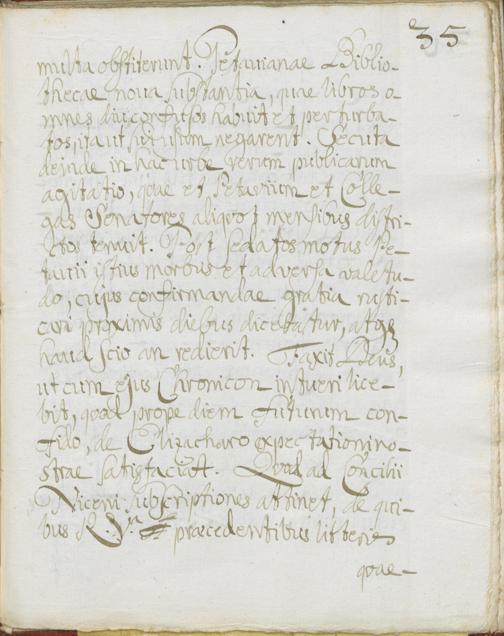 35
multa obstiterunt. Petavianae Biblio-
thecae nova substantia, quae libros o-
mnes diu confusos habuit et perturba-
tos, ita ut sui usum negarent. Secuta
deinde in hac urbe rerum publicarum
agitatio, quae et Petavium et Colle-
gas Senatores aliquot mensibus distri-
ctos tenuit. Post sedatos motus Pe-
tavii istius morbus et adversa valetu-
do, cujus confirmandae gratia rusti-
cari proximis diebus dicebatur, atque
haud scio an redierit. Faxit Deus,
ut cum ejus Chronicon intueri lice-
bit, quod prope diem futurum con-
fido, de Elizacharo expectationi no-
strae satisfaciat. Quod ad Concilii
Niceni subscriptiones attinet, de qui-
bus R. Va. praecedentibus litteris
quae-